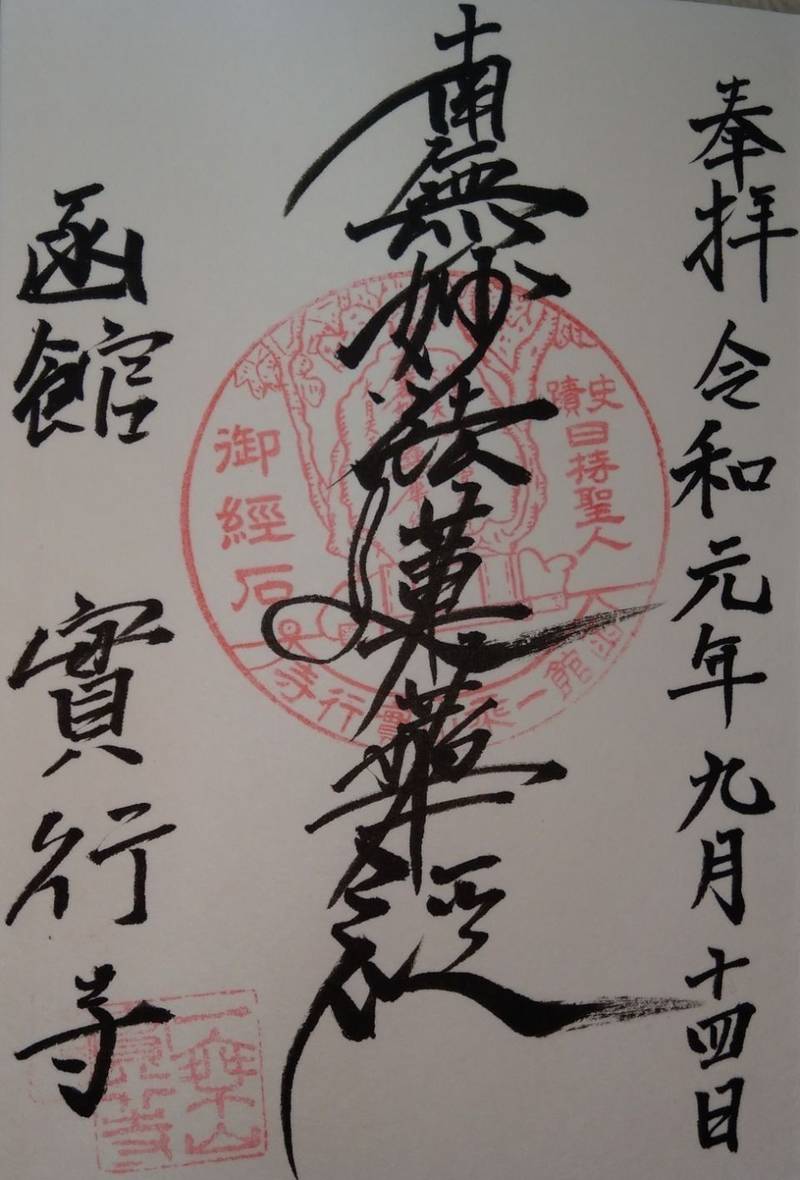 奉拝 令和元年九月十四日
南無妙法蓮華経
函館 實行寺
史蹟日持聖人
御經石
函館一乗山實行寺
一乗山實行寺